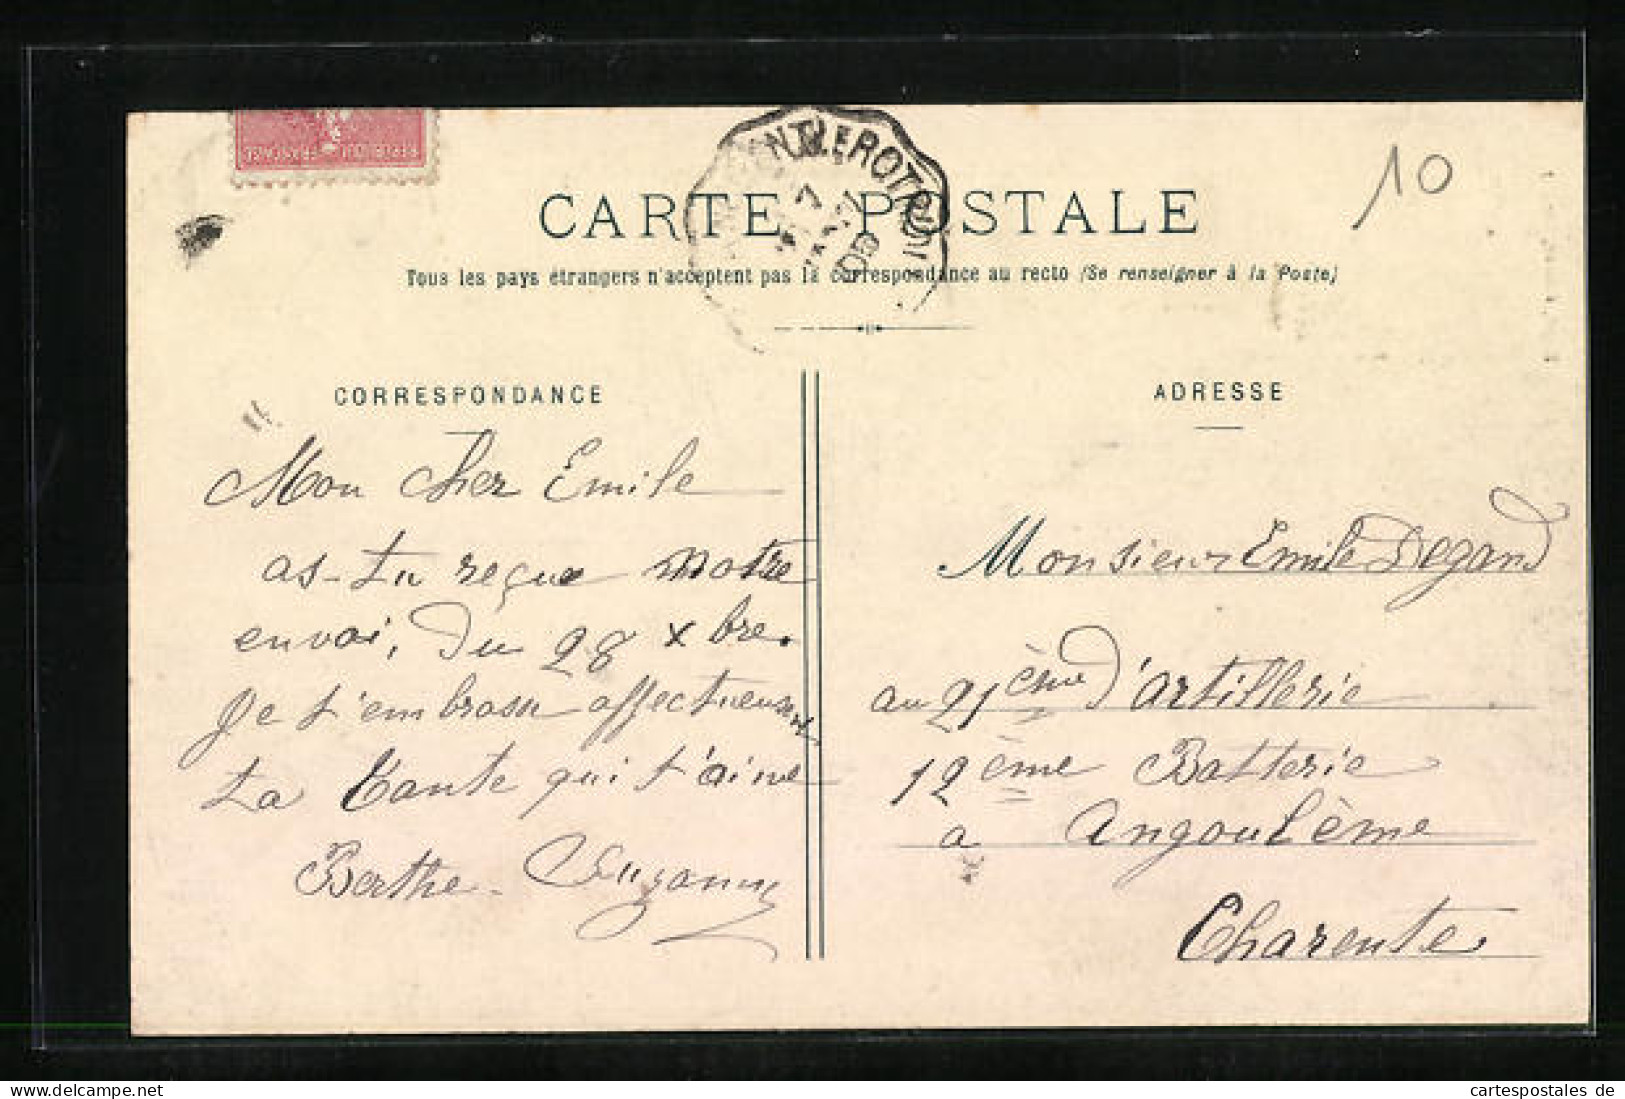 REPUBLIQUE FRANÇAISE
10
CARTE POSTALE
Tous les pays étrangers n'acceptent pas la correspondance au recto (Se renseigner à la Poste)
CORRESPONDANCE
Mon cher Emile
as-tu reçue notre
envoi, du 28 Xbre.
Je t'embrasse affectueusement
ta tante qui t'aime
Berthe Suzanne
ADRESSE
Monsieur Emile Degand
au 21ème d'artillerie
12ème Batterie
a Angoulème
Charente
delcampe.net
cartespostales de